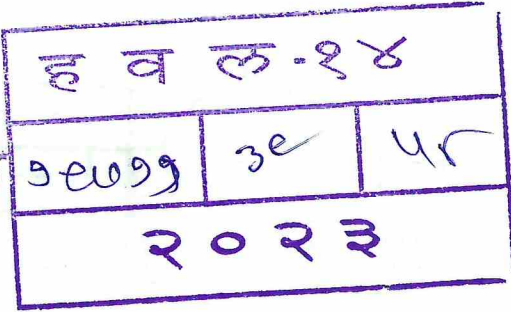 ह व ल-१४
१९७११ ३९ ५८
२०२३